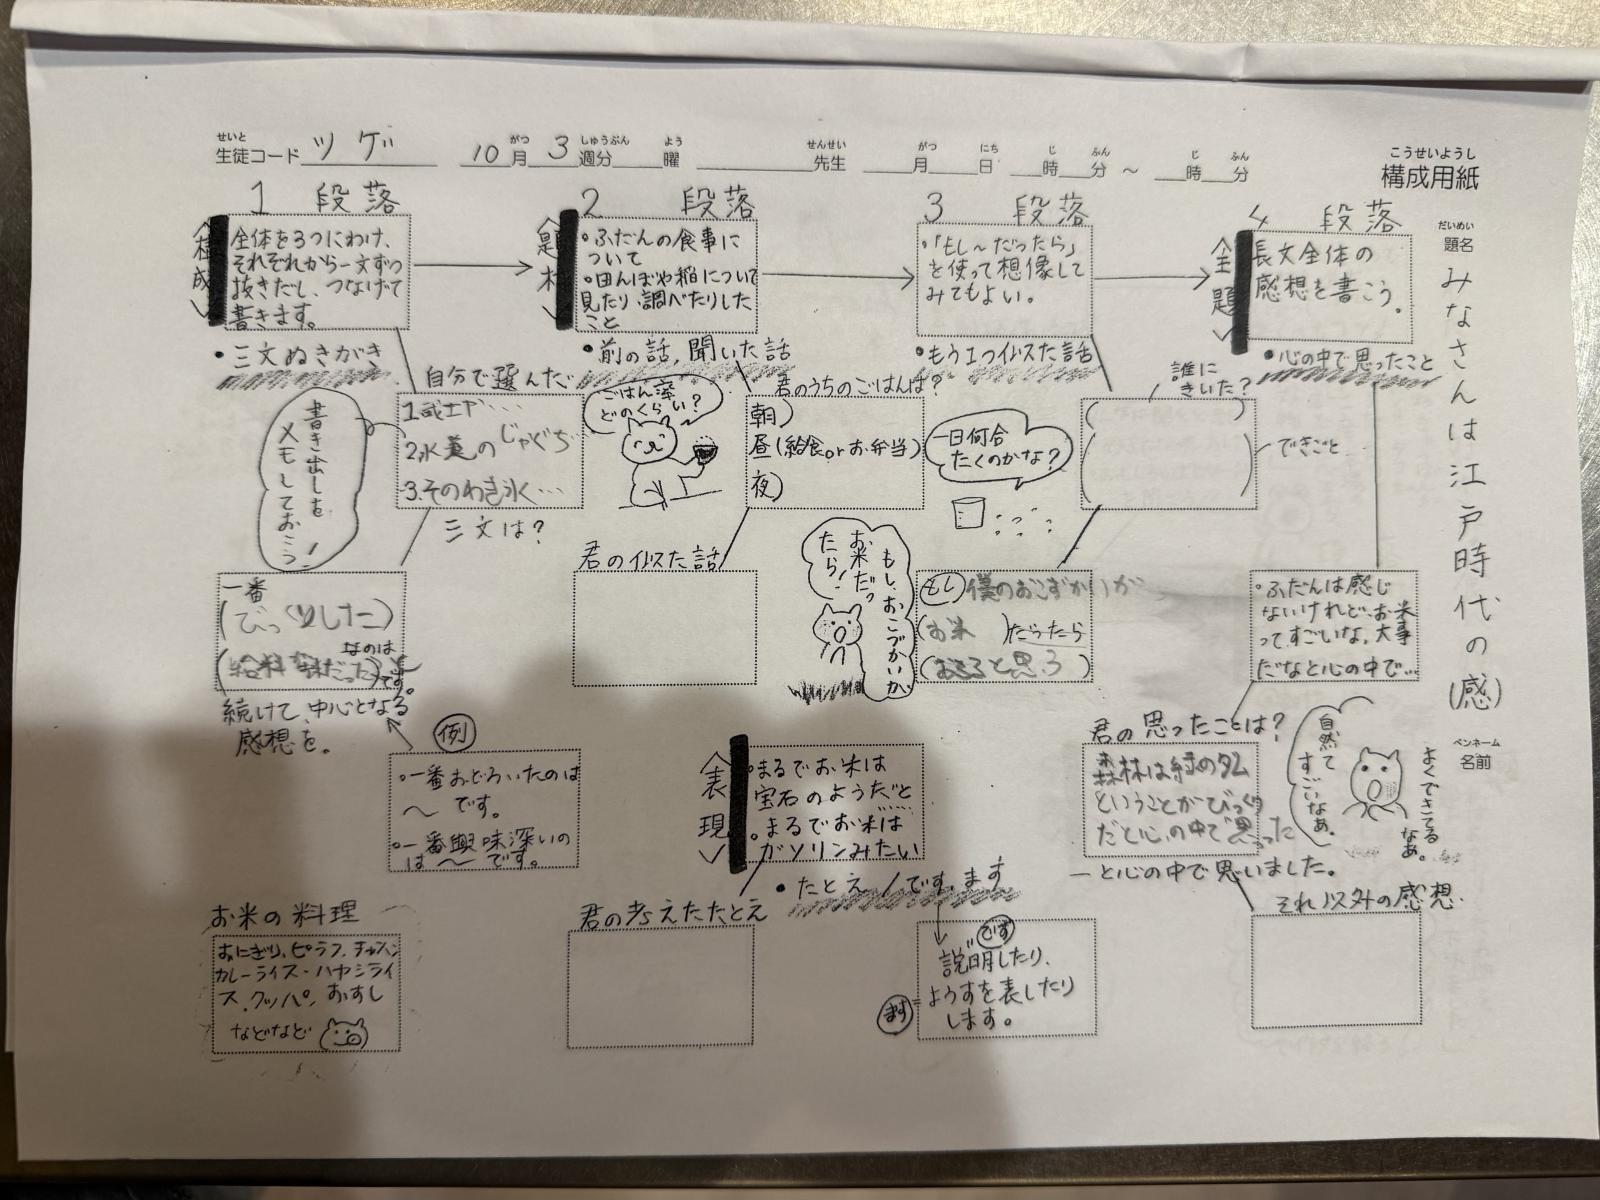 せいと
生徒コード ツゲ 10 がつ 月 3 しゅうぶん 週分 よう 曜 せんせい 先生 がつ 月 にち 日 じ 時 ふん 分 ～ じ 時 ふん 分
こうせいようし
構成用紙
だいめい
題名
みなさんは江戸時代の(感)
ペンネーム
名前
1 段落
<構成>
全体を3つにわけ、
それぞれから一文ずつ
抜きだし、つなげて
書きます。
・三文ぬきがき
自分で選んだ
1.武士や…
2.水道のじゃぐち
3.そのわき水…
三文は?
書き出しを
メモしておこう!
一番
(びっくりした)
なのは
(給料が米だった)です。
続けて、中心となる
感想を。
例
・一番おどろいたのは
～です。
・一番興味深いの
は～です。
お米の料理
おにぎり、ピラフ、チャーハン
カレーライス・ハヤシライ
ス、クッパ、おすし
などなど
2 段落
<題材>
・ふだんの食事に
ついて
・田んぼや稲について
見たり・調べたりした
こと
・前の話、聞いた話
ごはん庫
どのくらい?
君のうちのごはんは?
朝)
昼(給食orお弁当)
夜)
君の似た話
<表現>
・まるでお米は
宝石のようだと
・まるでお米は
ガソリンみたい
・たとえ/です、ます
君の考えたたとえ
3 段落
・「もし～だったら」
を使って想像して
みてもよい。
・もう1つ似た話
一日何合
たくのかな?
誰に
きいた?
できごと
もし、おこづかいが
お米だっ
たら!
もし 僕のおこずかいが
(お米)だったら
(おこると思う)
です
説明したり、
ようすを表したり
します。
ます
4 段落
<全題>
長文全体の
感想を書こう。
・心の中で思ったこと
・ふだんは感じ
ないけれど、お米
ってすごいな、大事
だなと心の中で…
君の思ったことは?
森林は緑のダム
ということがびっくり
だと心の中で思った
―と心の中で思いました。
自然て
すごいなぁ。
よくできてる
なぁ。
それ以外の感想